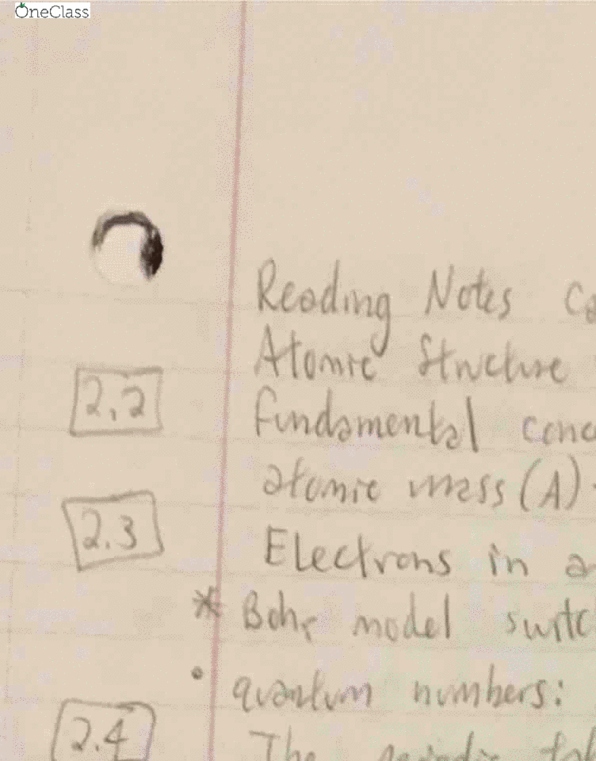 OneClass
Reading Notes
Atomic Structure
2.2 fundamental conc
atomic mass (A)
2.3 Electrons in a
* Bohr model switc
• quantum numbers:
2.4 The periodic